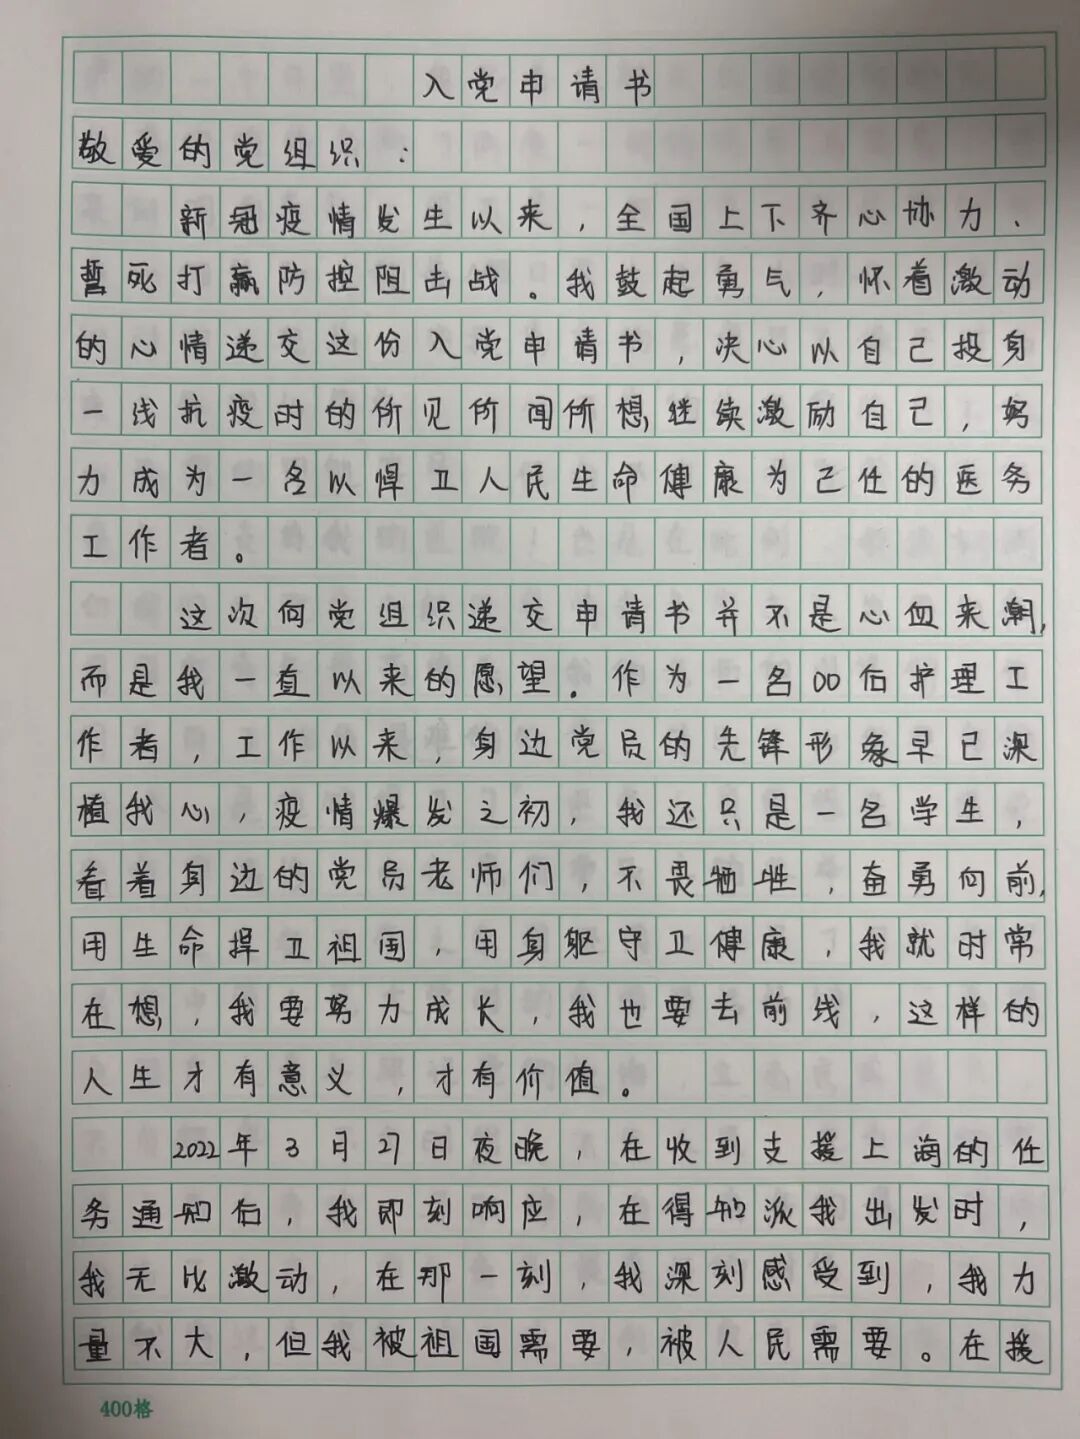 入党申请书
敬爱的党组织：
新冠疫情发生以来，全国上下齐心协力、
誓死打赢防控阻击战。我鼓起勇气，怀着激动
的心情递交这份入党申请书，决心以自己投身
一线抗疫时的所见所闻所想，继续激励自己，努
力成为一名以悍卫人民生命健康为己任的医务
工作者。
这次向党组织递交申请书并不是心血来潮，
而是我一直以来的愿望．作为一名00后护理工
作者，工作以来，身边党员的先锋形象早已深
植我心，疫情爆发之初，我还只是一名学生，
看着身边的党员老师们，不畏牺牲，奋勇向前，
用生命捍卫祖国，用身躯守卫健康，我就时常
在想，我要努力成长，我也要去前线，这样的
人生才有意义，才有价值。
2022年3月27日夜晚，在收到支援上海的任
务通知后，我即刻响应，在得知派我出发时，
我无比激动，在那一刻，我深刻感受到，我力
量不大，但我被祖国需要，被人民需要。在援
400格